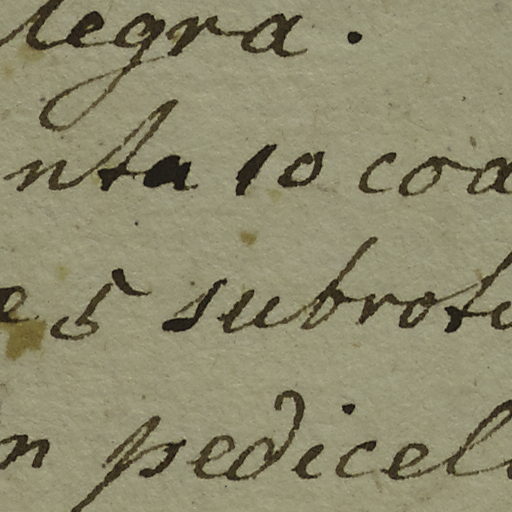 legra.
nta 10 coa
e 5 subrotu
n pedicell